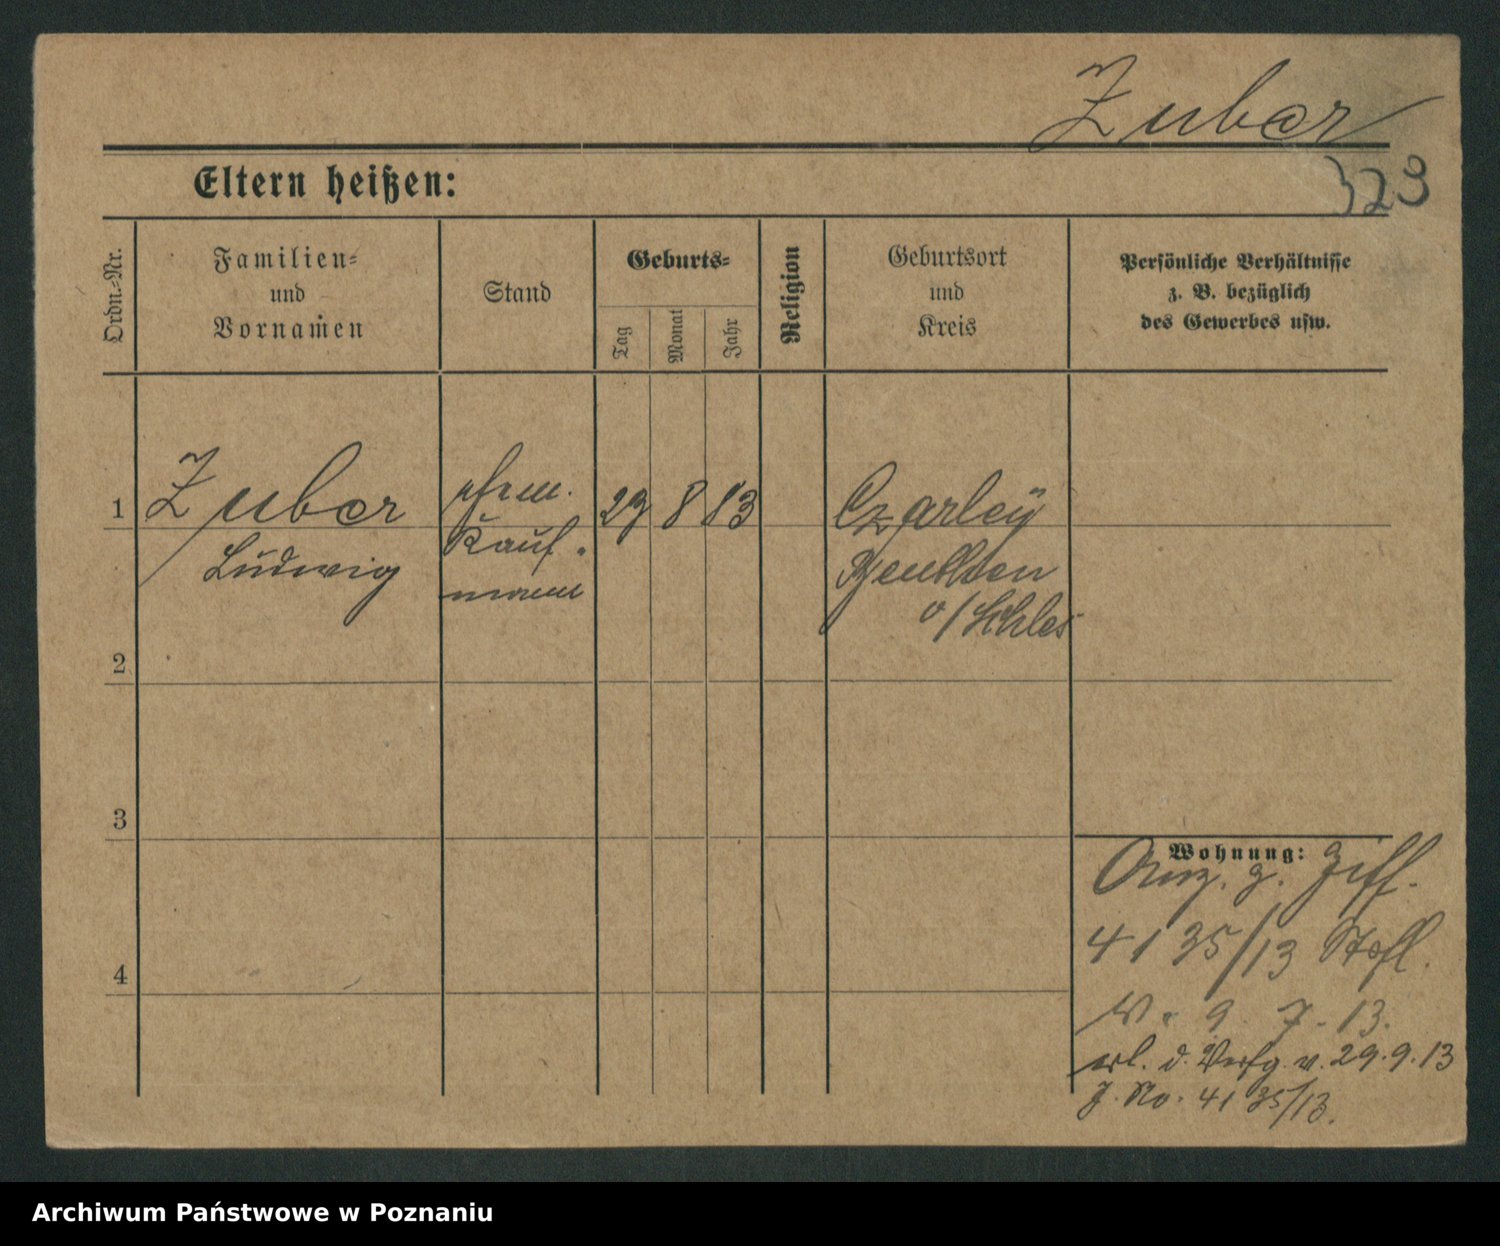 Zuber
329
Eltern heißen:
Ordn.-Nr.
Familien-
und
Vornamen
Stand
Geburts-
Tag
Monat
Jahr
Religion
Geburtsort
und
Kreis
Persönliche Verhältnisse
z. B. bezüglich
des Gewerbes usw.
1
Zuber
Ludwig
Kauf-
mann
29 8 83
Czarley
Beuthen
o/Schles
2
3
4
Wohnung:
Anz. z. Ziff.
4135/13 Stpfl.
V. 9. 7. 13.
erl. d. Verfg. v. 29.9.13
J. No. 4135/13.
Archiwum Państwowe w Poznaniu